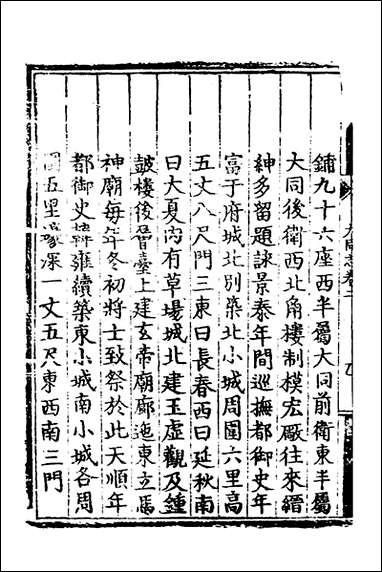 鋪九十六座西半屬大同前衛東半屬
大同後衛西北角樓制模宏厰往來縉
紳多留題詠景泰年間巡撫都御史年
富于府城北別築北小城周圍六里高
五丈八尺門三東曰長春西曰延秋南
曰大夏內有草場城北建玉虛觀及鍾
皷樓後晉臺上建玄帝廟廊迤東立馬
神廟每年冬初將士致祭於此天順年
都御史韓雍續築東小城南小城各周
圍五里濠深一丈五尺東西南三門